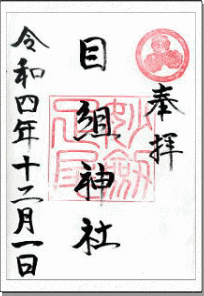 奉拝
目組神社
令和四年十二月一日